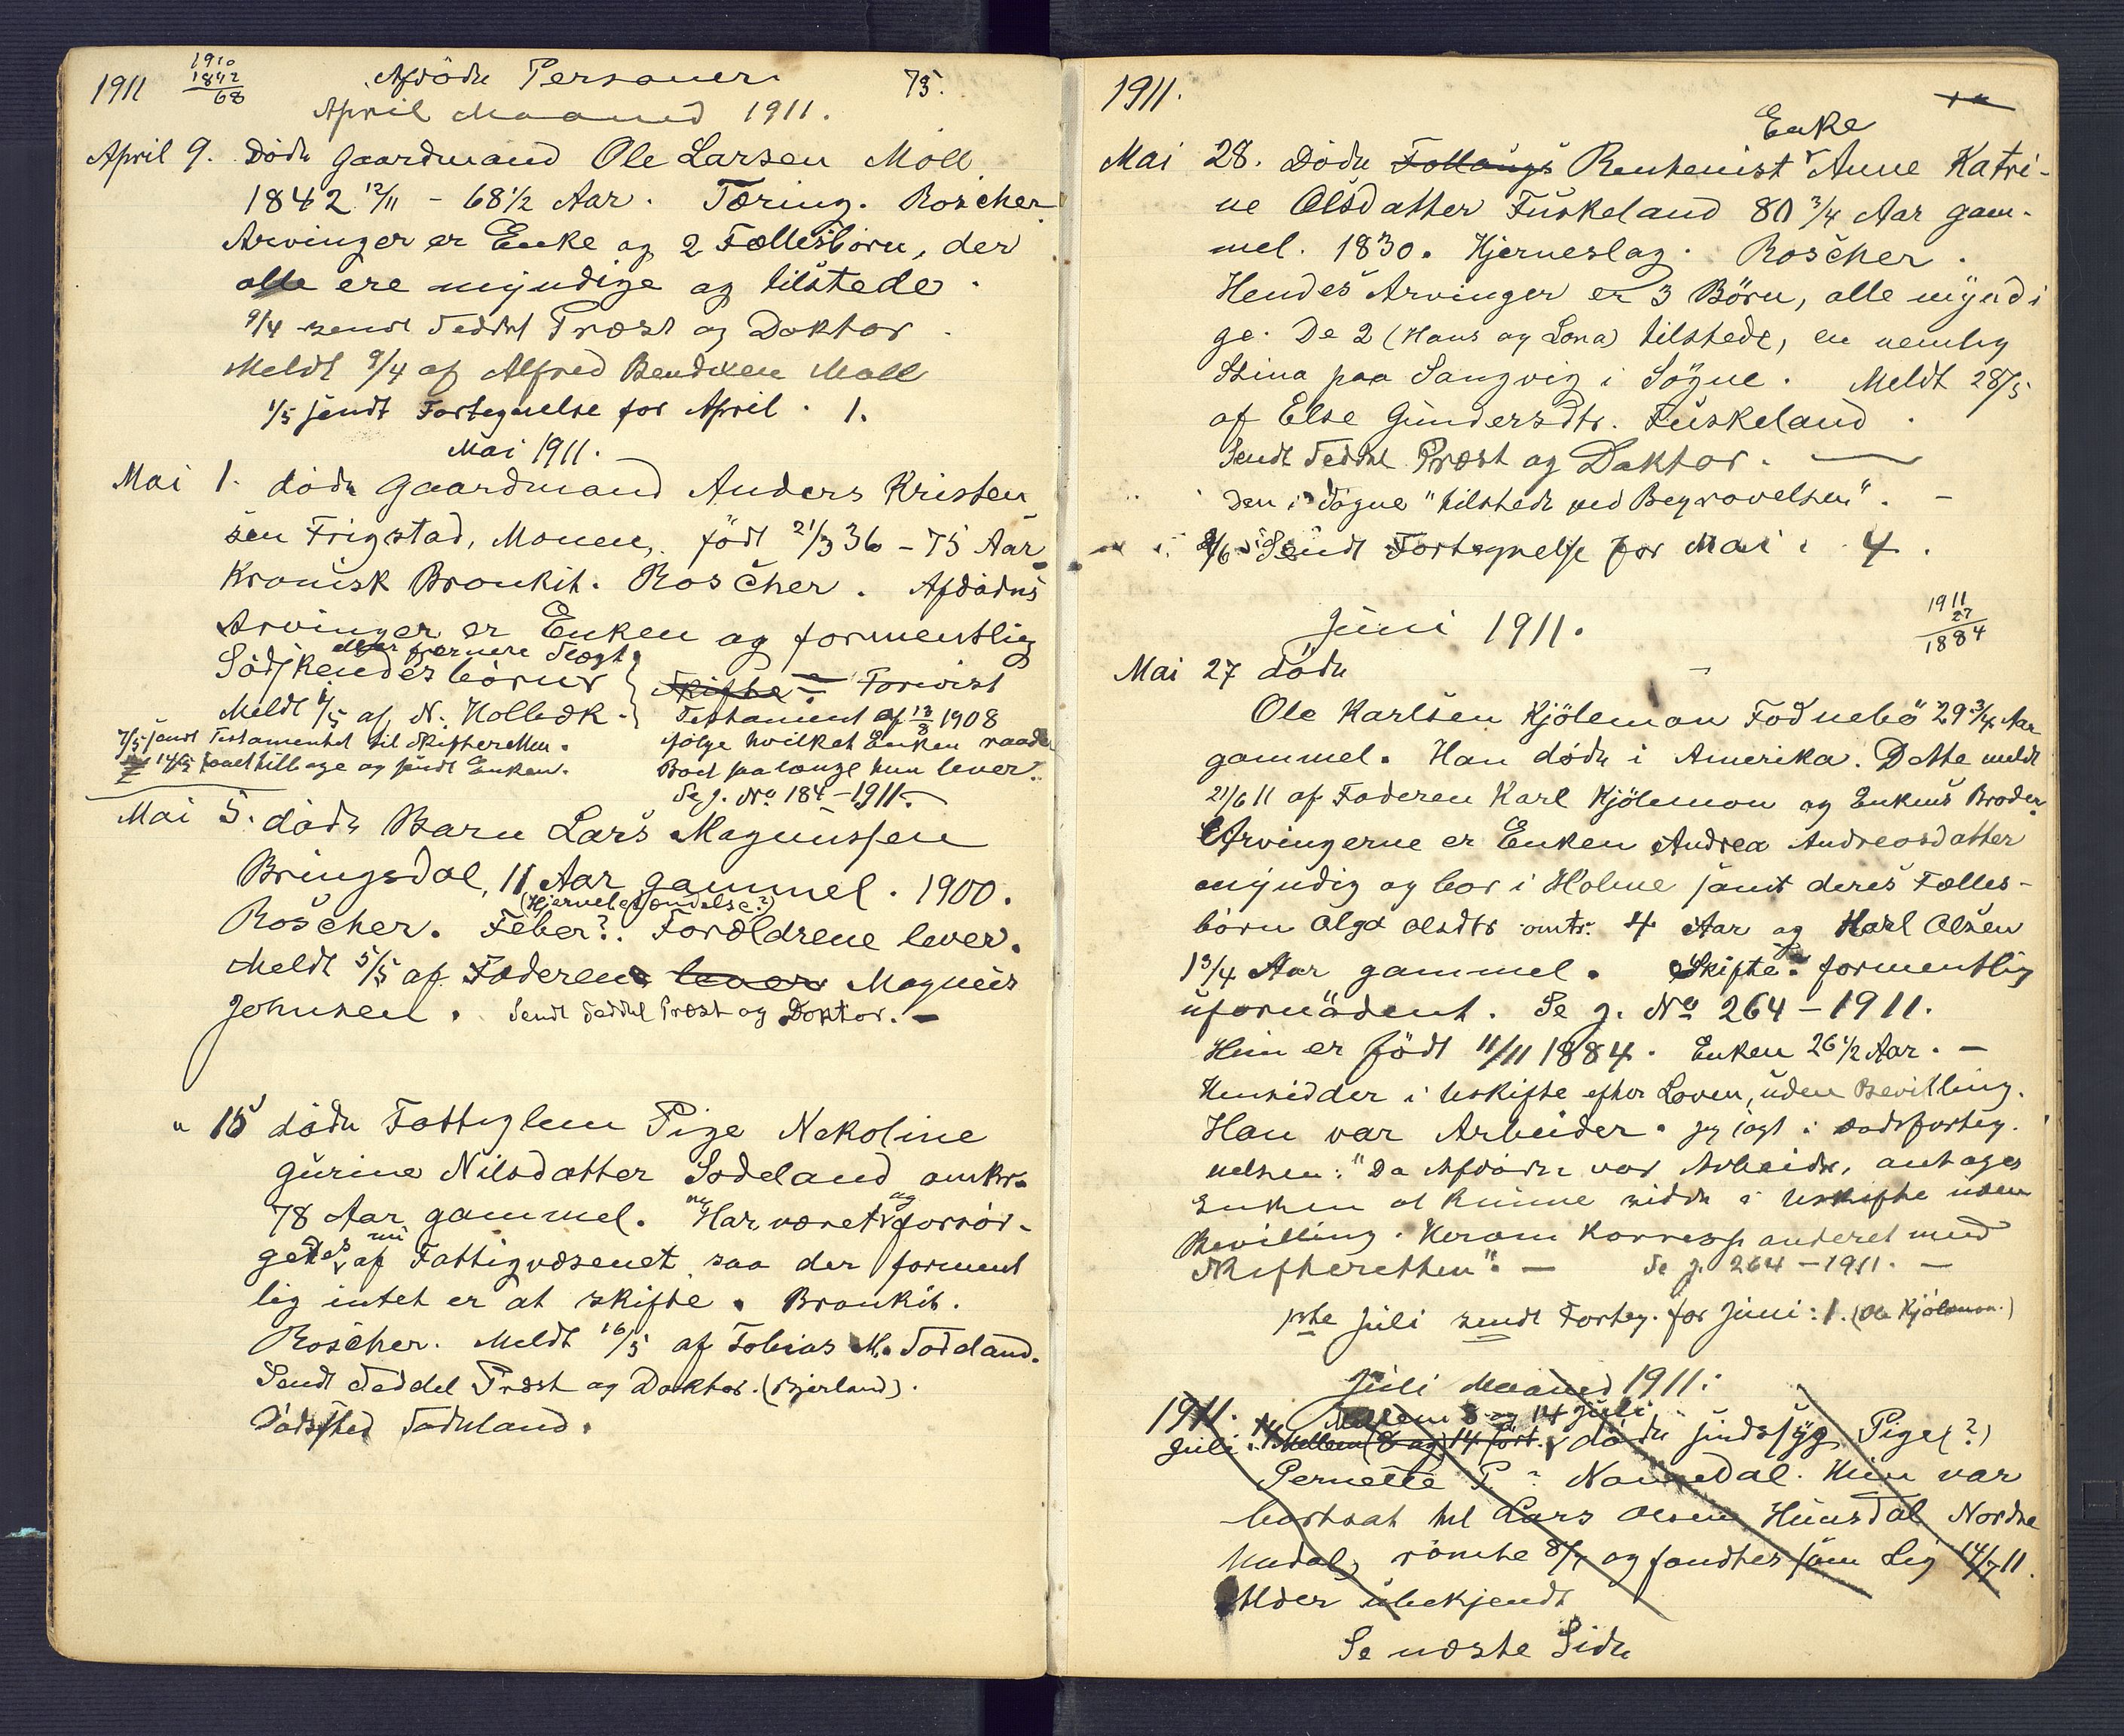 1911 1910 Afdøde Personer. 75.
1842
68
April Maaned 1911.
April 9. Døde Gaardmand Ole Larsen Moll
1842 12/11 - 68 1/2 Aar. Tæring. Roscher
Arvinger er Enke og 2 Fællesbørn, der
alle ere myndige og tilstede.
9/4 sendt Seddel Præst og Doktor.
Meldt 9/4 af Alfred Bendixen Moll
1/5 sendt Fortegnelse for April. 1.
Mai 1911.
Mai 1. døde Gaardmand Anders Kristen
sen Frigstad, Monen, født 21/3 36 - 75 Aar
Kronisk Bronkit. Roscher. Afdødes
Arvinger er Enken og formentlig
eller fjernere Slægt.
Sødskendesbørn
Skifte = Forvist
Meldt 1/5 af N. Holbæk.
Testament af 13/8 1908
7/5 sendt Testamentet til Skifteretten.
følge hvilket Enken raader
14/5 faaet tilbage og sendt Enken.
Boet saalænge hun lever.
Se j. No 184 - 1911.
Mai 5. døde Barn Lars Magnussen
Bringsdal, 11 Aar gammel. 1900.
(Hjernebetændelse?)
Roscher. Feber?. Forældrene lever.
Meldt 5/5 af Faderen lever Magnus
Johnsen. Sendt Seddel Præst og Doktor. -
" 15 døde Fattiglem Pige Nekoline
Gurine Nilsdatter Sodeland omkr.
78 Aar gammel. Har været og forsør-
getes nu af Fattigvæsenet saa der forment
lig intet er at skifte. Bronkit.
Roscher. Meldt 16/5 af Tobias M. Sodeland.
Sendt Seddel Præst og Doktor. (Bjerland).
Dødssted Sodeland.
1911.
Enke
Mai 28. Døde Follaugs Rentenist Anne Katri-
ne Olsdatter Fuskeland 80 3/4 Aar gam-
mel. 1830. Hjerneslag. Roscher.
Hendes Arvinger er 3 Børn, alle myndi
ge. De 2 (Hans og Lona) tilstede, en nemlig
Stina paa Langvig i Søgne. Meldt 28/5
af Else Gundersdtr. Fuskeland.
Sendt Seddel Præst og Doktor. -
Den i Søgne "tilstede ved Begravelsen". -
2/6 Sendt Fortegnelse for Mai: 4.
Juni 1911.
1911
27
1884
Mai 27 døde
Ole Karlsen Kjølemon Fodnebø 29 3/4 Aar
gammel. Han døde i Amerika. Dette meldt
21/6 11 af Faderen Karl Kjølemon og Enkens Broder.
Arvingerne er Enken Andrea Andreasdatter
myndig og bor i Holme samt deres Fælles-
børn Olga Olsdtr omtr. 4 Aar og Karl Olsen
1 3/4 Aar gammel. Skifte? formentlig
ufornødent. Se j. No 264 - 1911.
Hun er født 11/11 1884. Enken 26 1/2 Aar. -
Hensidder i Uskifte efter Loven, uden Bevilling.
Han var Arbeider. jeg sagt i Dødsforteg.
nelsen: "Da Afdøde var Arbeider, antages
Enken at kunne sidde i Uskifte uden
Bevilling. Herom korresponderet med
Skifteretten". - Se j. 264 - 1911. -
1ste Juli sendt Forteg. for Juni: 1. (Ole Kjølemon.)
Juli Maaned 1911.
1911. Mellem 8 og 14 Juli
Juli 14 Mellem (8 og) 14 døde sindssyg Pige (?)
Pernette P. ? Navnedal. Hun var
bortsat til Lars Olsen Hunsdal Nordre
Undal, rømte 8/7 og fandtes som Lig 14/7 11.
Alder ubekjendt
Se næste Side